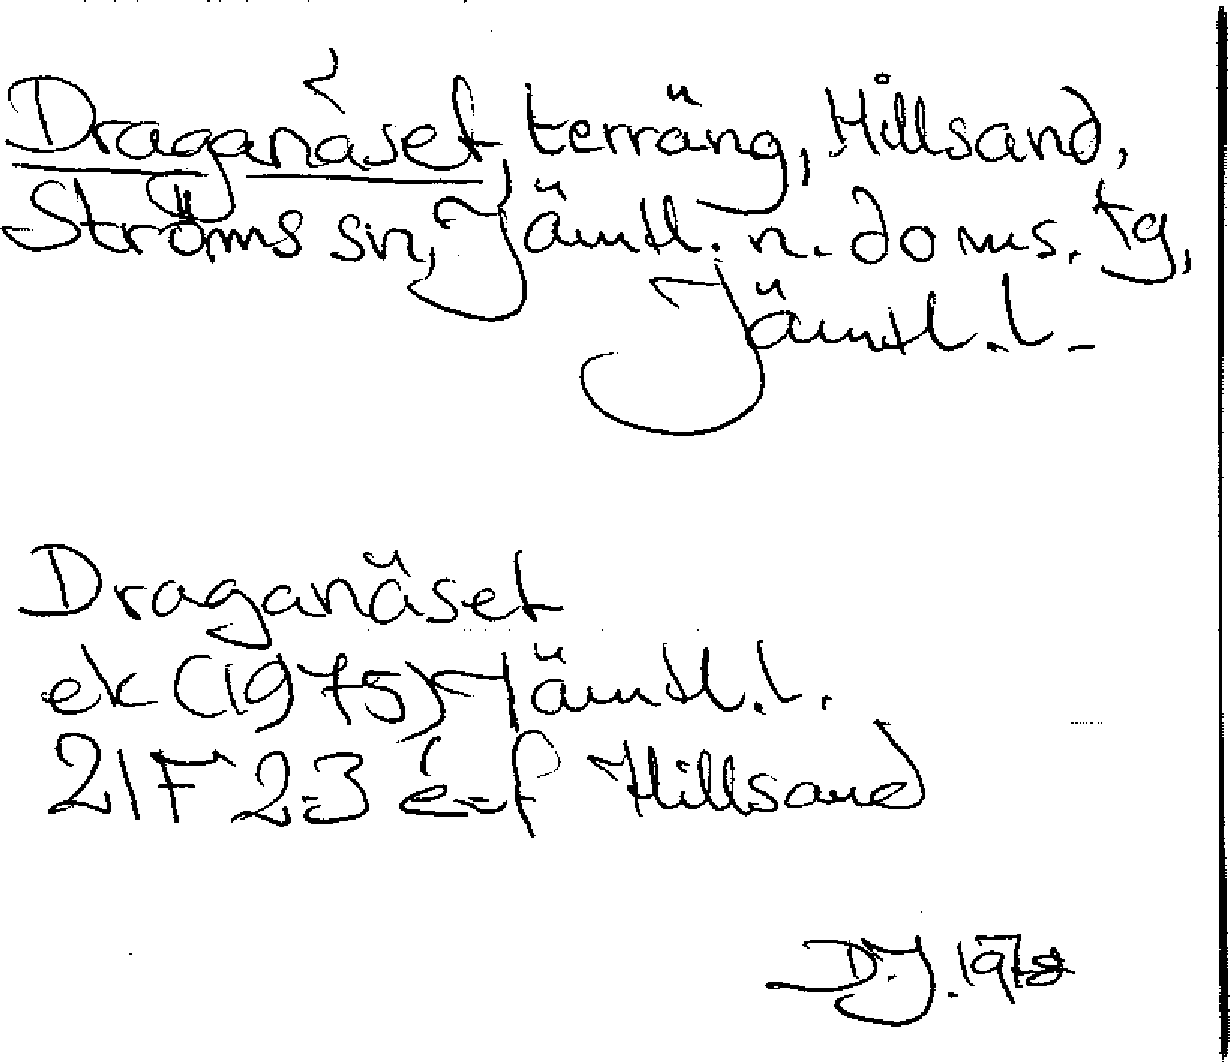 Draganäset, terräng, Hillsand,
Ströms sn, Jämtl. n. doms. tg,
Jämtl. l.
Draganäset
ek (1975) Jämtl. l.
21F 2-3 e-f Hillsand
D.J. 1978